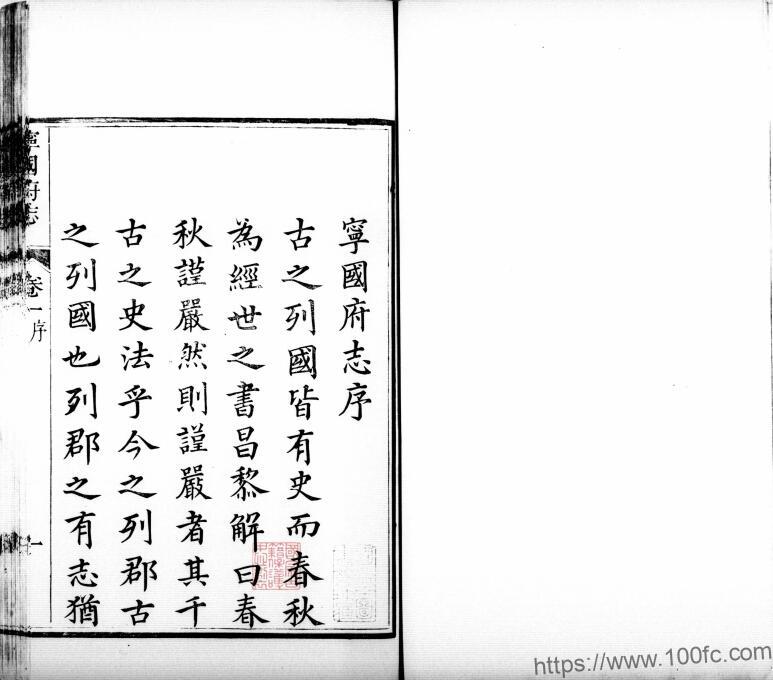 寧國府志序
古之列國皆有史而春秋
為經世之書昌黎解曰春
秋謹嚴然則謹嚴者其千
古之史法乎今之列郡古
之列國也列郡之有志猶
寧國府志
卷一序
一
https://www.100fc.com